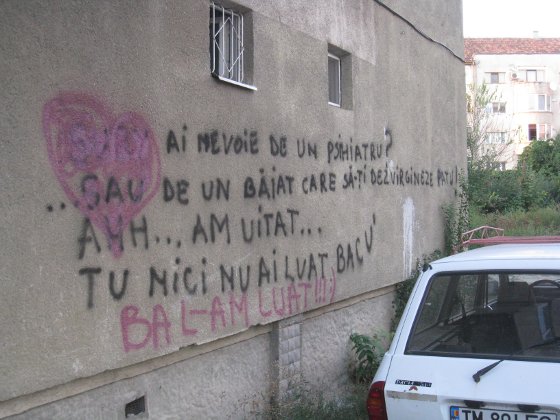 AI NEVOIE DE UN PSIHIATRU?
...SAU DE UN BĂIAT CARE SĂ-ȚI DEZVIRGINEZE PATU!
AHH... AM UITAT...
TU NICI NU AI LUAT BACU'
BA L-AM LUAT!!! :)